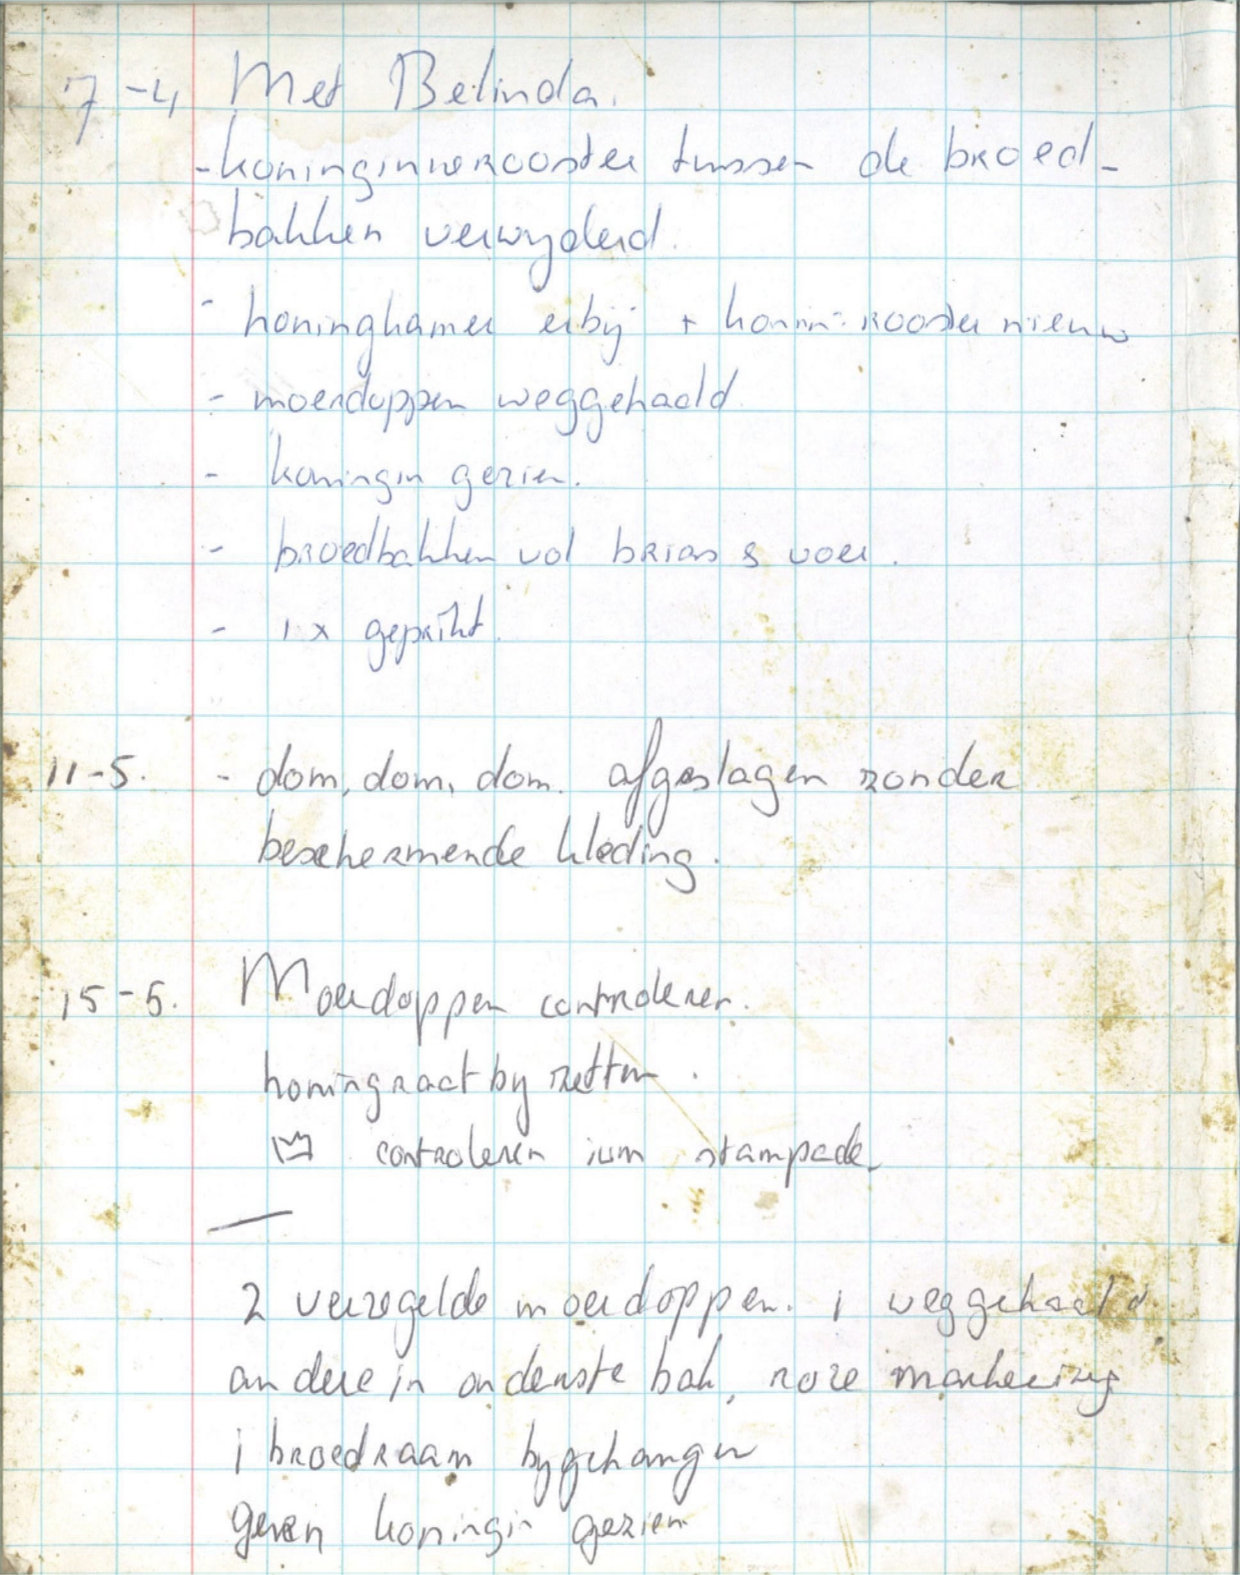 7-4 Met Belinda.
- koninginnerooster tussen de broed-
bakken verwyderd.
- honingkamer erbij + konin: rooster nieuw
- moerdoppen weggehaald.
- koningin gezien.
- broedbakken vol brias & voer.
- 1x geprikt.
11-5. - dom, dom, dom. afgeslagen zonder
beschermende kleding.
15-5. Moerdoppen controleren.
honingraat by zetten.
controleren ivm stampede
2 verzegelde moerdoppen. 1 weggehaald
andere in onderste bak, roze markering
1 broedraam bygehangen
geen koningin gezien